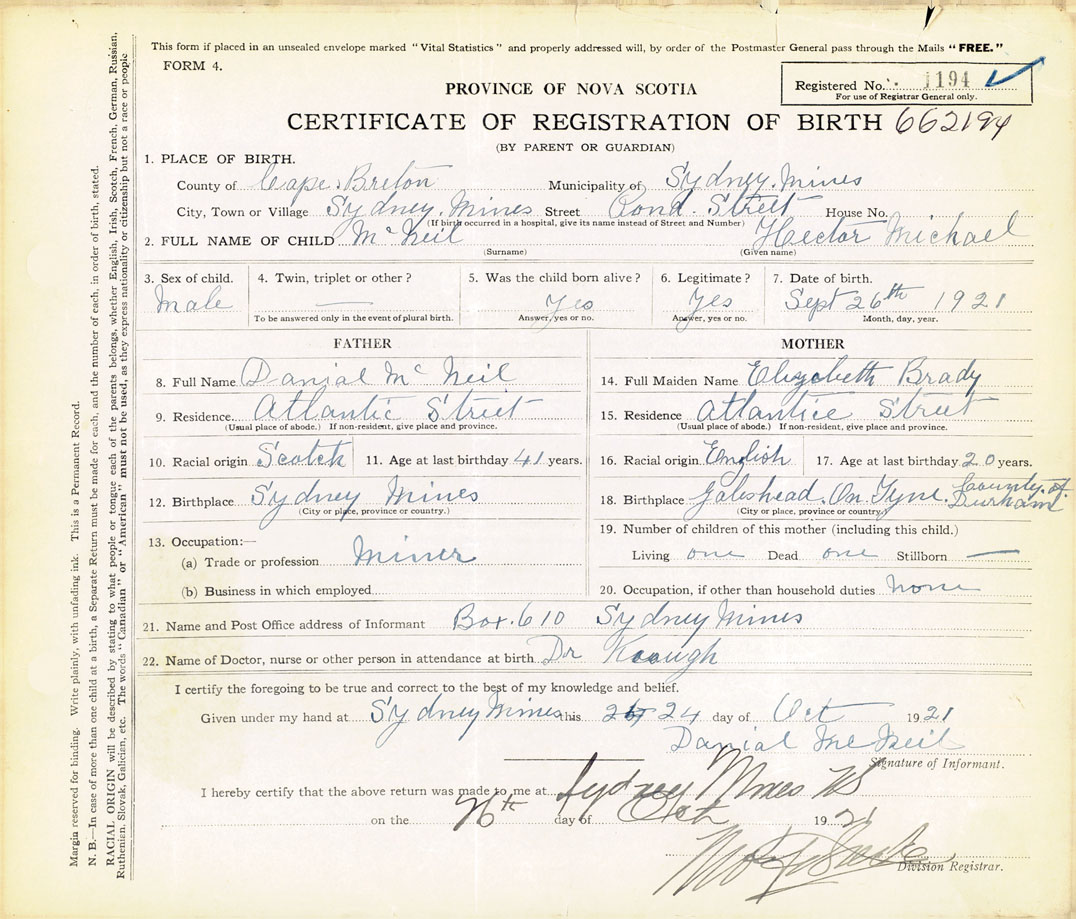 This form if placed in an unsealed envelope marked "Vital Statistics" and properly addressed will, by order of the Postmaster General pass through the Mails "FREE."
FORM 4.
Registered No. 1194
For use of Registrar General only.
PROVINCE OF NOVA SCOTIA
CERTIFICATE OF REGISTRATION OF BIRTH 662194
(BY PARENT OR GUARDIAN)
1. PLACE OF BIRTH.
County of Cape Breton Municipality of Sydney Mines
City, Town or Village Sydney Mines Street Pond Street House No.
(If birth occurred in a hospital, give its name instead of Street and Number)
2. FULL NAME OF CHILD McNeil Hector Michael
(Surname) (Given name)
3. Sex of child. 4. Twin, triplet or other? 5. Was the child born alive? 6. Legitimate? 7. Date of birth.
Male — Yes Yes Sept 26th 1921
To be answered only in the event of plural birth. Answer, yes or no. Answer, yes or no. Month, day, year.
FATHER MOTHER
8. Full Name Danial Mc Neil 14. Full Maiden Name Elizebeth Brady
9. Residence Atlantic Street 15. Residence Atlantice Street
(Usual place of abode.) If non-resident, give place and province. (Usual place of abode.) If non-resident, give place and province.
10. Racial origin Scotch 11. Age at last birthday 41 years. 16. Racial origin English 17. Age at last birthday 20 years.
12. Birthplace Sydney Mines 18. Birthplace Gateshead. On Tyne. County of Durham
(City or place, province or country.) (City or place, province or country.)
19. Number of children of this mother (including this child.)
13. Occupation:—
(a) Trade or profession Miner Living one Dead one Stillborn —
(b) Business in which employed 20. Occupation, if other than household duties none
21. Name and Post Office address of Informant Box. 610 Sydney Mines
22. Name of Doctor, nurse or other person in attendance at birth Dr Keough
I certify the foregoing to be true and correct to the best of my knowledge and belief.
Given under my hand at Sydney Mines this 24 day of Oct 1921
Danial McNeil
Signature of Informant.
I hereby certify that the above return was made to me at Sydney Mines NS
on the 26th day of Oct 1921
Division Registrar.
Margin reserved for binding. Write plainly, with unfading ink. This is a Permanent Record.
N. B.—In case of more than one child at a birth, a Separate Return must be made for each, and the number of each, in order of birth, stated.
RACIAL ORIGIN will be described by stating to what people or tongue each of the parents belongs, whether English, Irish, Scotch, French, German, Russian,
Ruthenian, Slovak, Galician, etc. The words "Canadian" or "American" must not be used, as they express nationality or citizenship but not a race or people